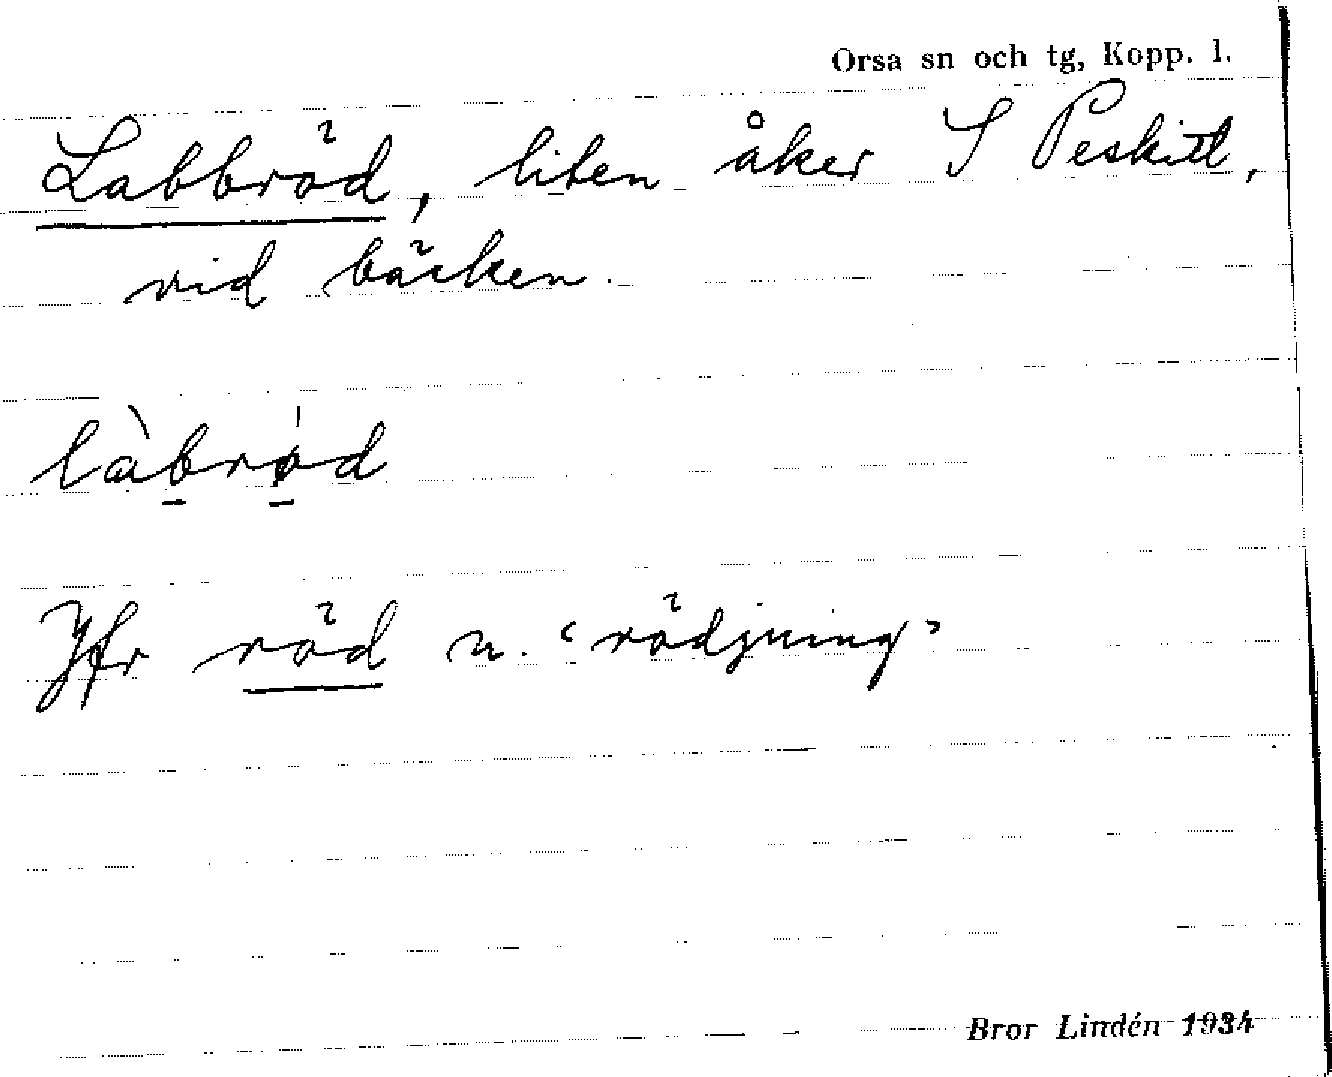 Orsa sn och tg, Kopp. l.
Labbröd, liten åker S Peskitl,
vid bäcken.
làbrød
Jfr röd n. ‘rödjning’
Bror Lindén 1934